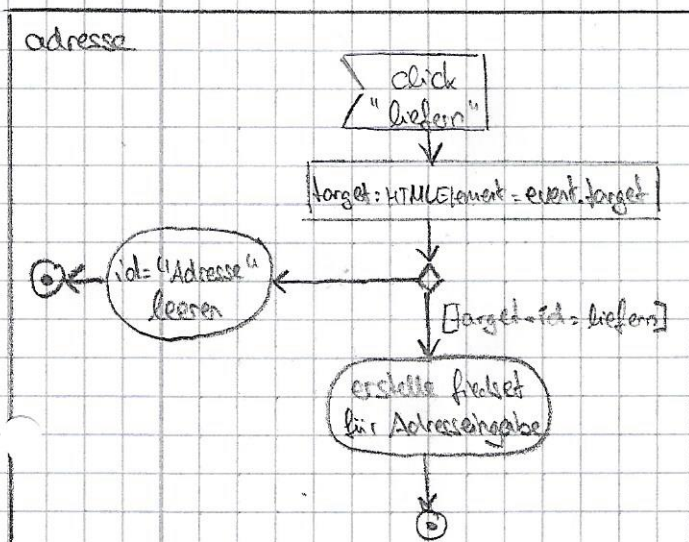 adresse
click
"liefern"
target: HTMLElement = event.target
id="Adresse"
leeren
[target.id = liefern]
erstelle fiedset
für Adresseingabe